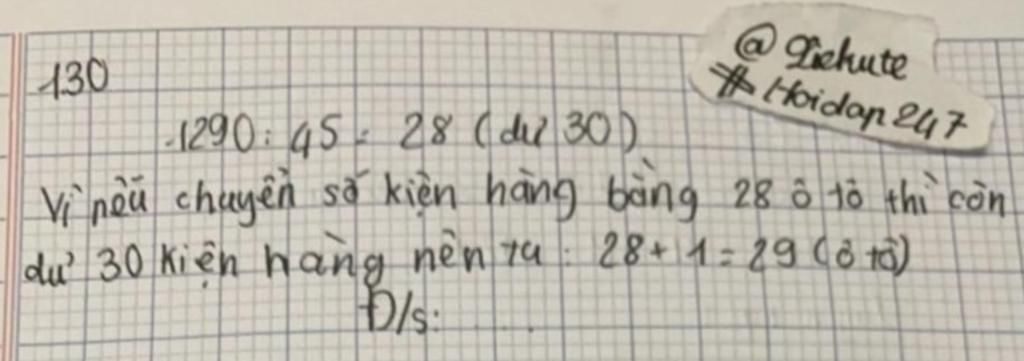 130
@Giehute
#Hoidap247
1290 : 45 = 28 (dư 30)
Vì nếu chuyển số kiện hàng bằng 28 ô tô thì còn
dư 30 kiện hàng nên ta : 28 + 1 = 29 (ô tô)
Đ/s: . . . .